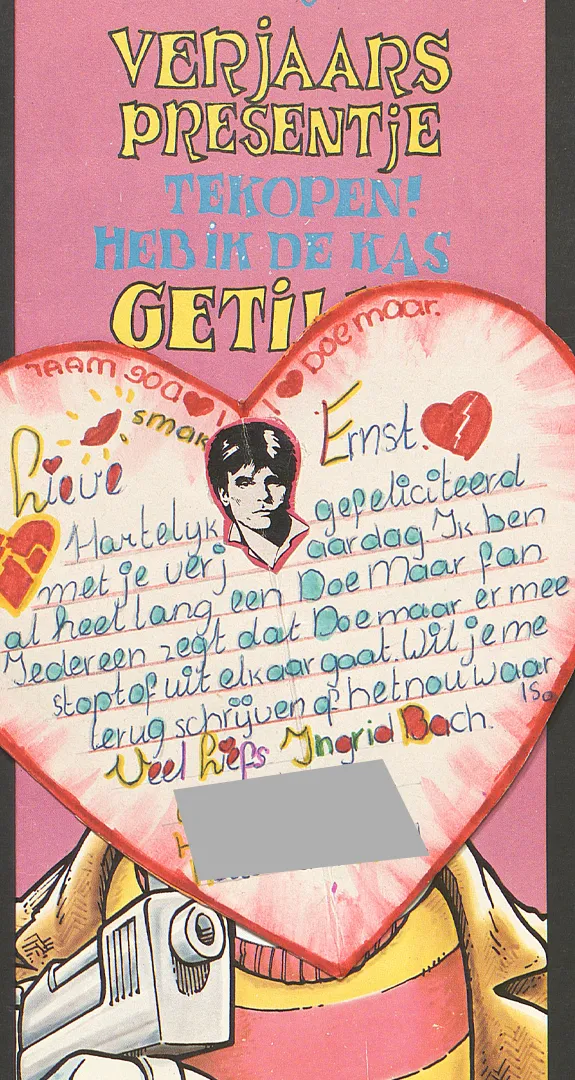 VERJAARS
PRESENTJE
TEKOPEN!
HEB IK DE KAS
GETIL
Doe maar.
smak
Lieve Ernst.
Hartelyk gefeliciteerd
met je verjaardag Ik ben
al heel lang een Doe Maar fan
Iedereen zegt dat Doemaar er mee
stopt of uit elkaar gaat. Wil je me
terug schrijven of het nou waar
is.
Veel liefs Ingrid Bach.